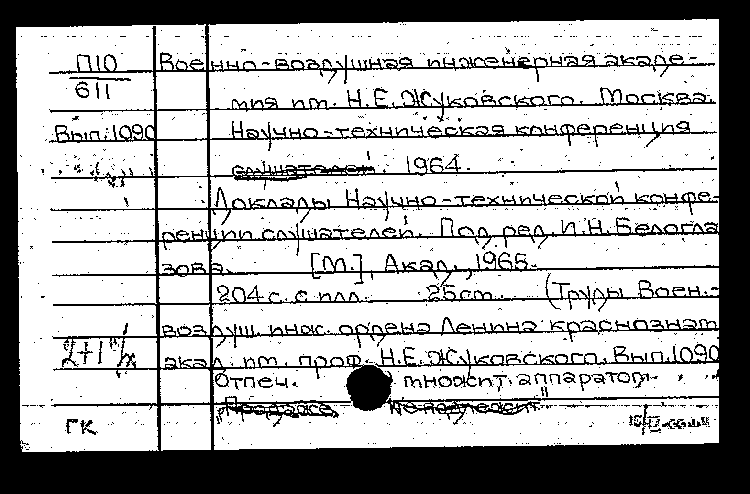 П10
611
Вып.1090
Военно-воздушная инженерная акаде-
мия им. Н.Е.Жуковского. Москва.
Научно-техническая конференция
слушателей. 1964.
Доклады Научно-технической конфе-
ренции слушателей. Под ред. И.Н.Белогла
зова. [М.], Акад., 1965.
204 с. с илл. 25см. (Труды Воен.-
воздуш. инж. ордена Ленина краснознам
акад. им. проф. Н.Е.Жуковского. Вып.1090
Отпеч. множит. аппаратом.
"Продаже не подлежит"
2+1
ГК